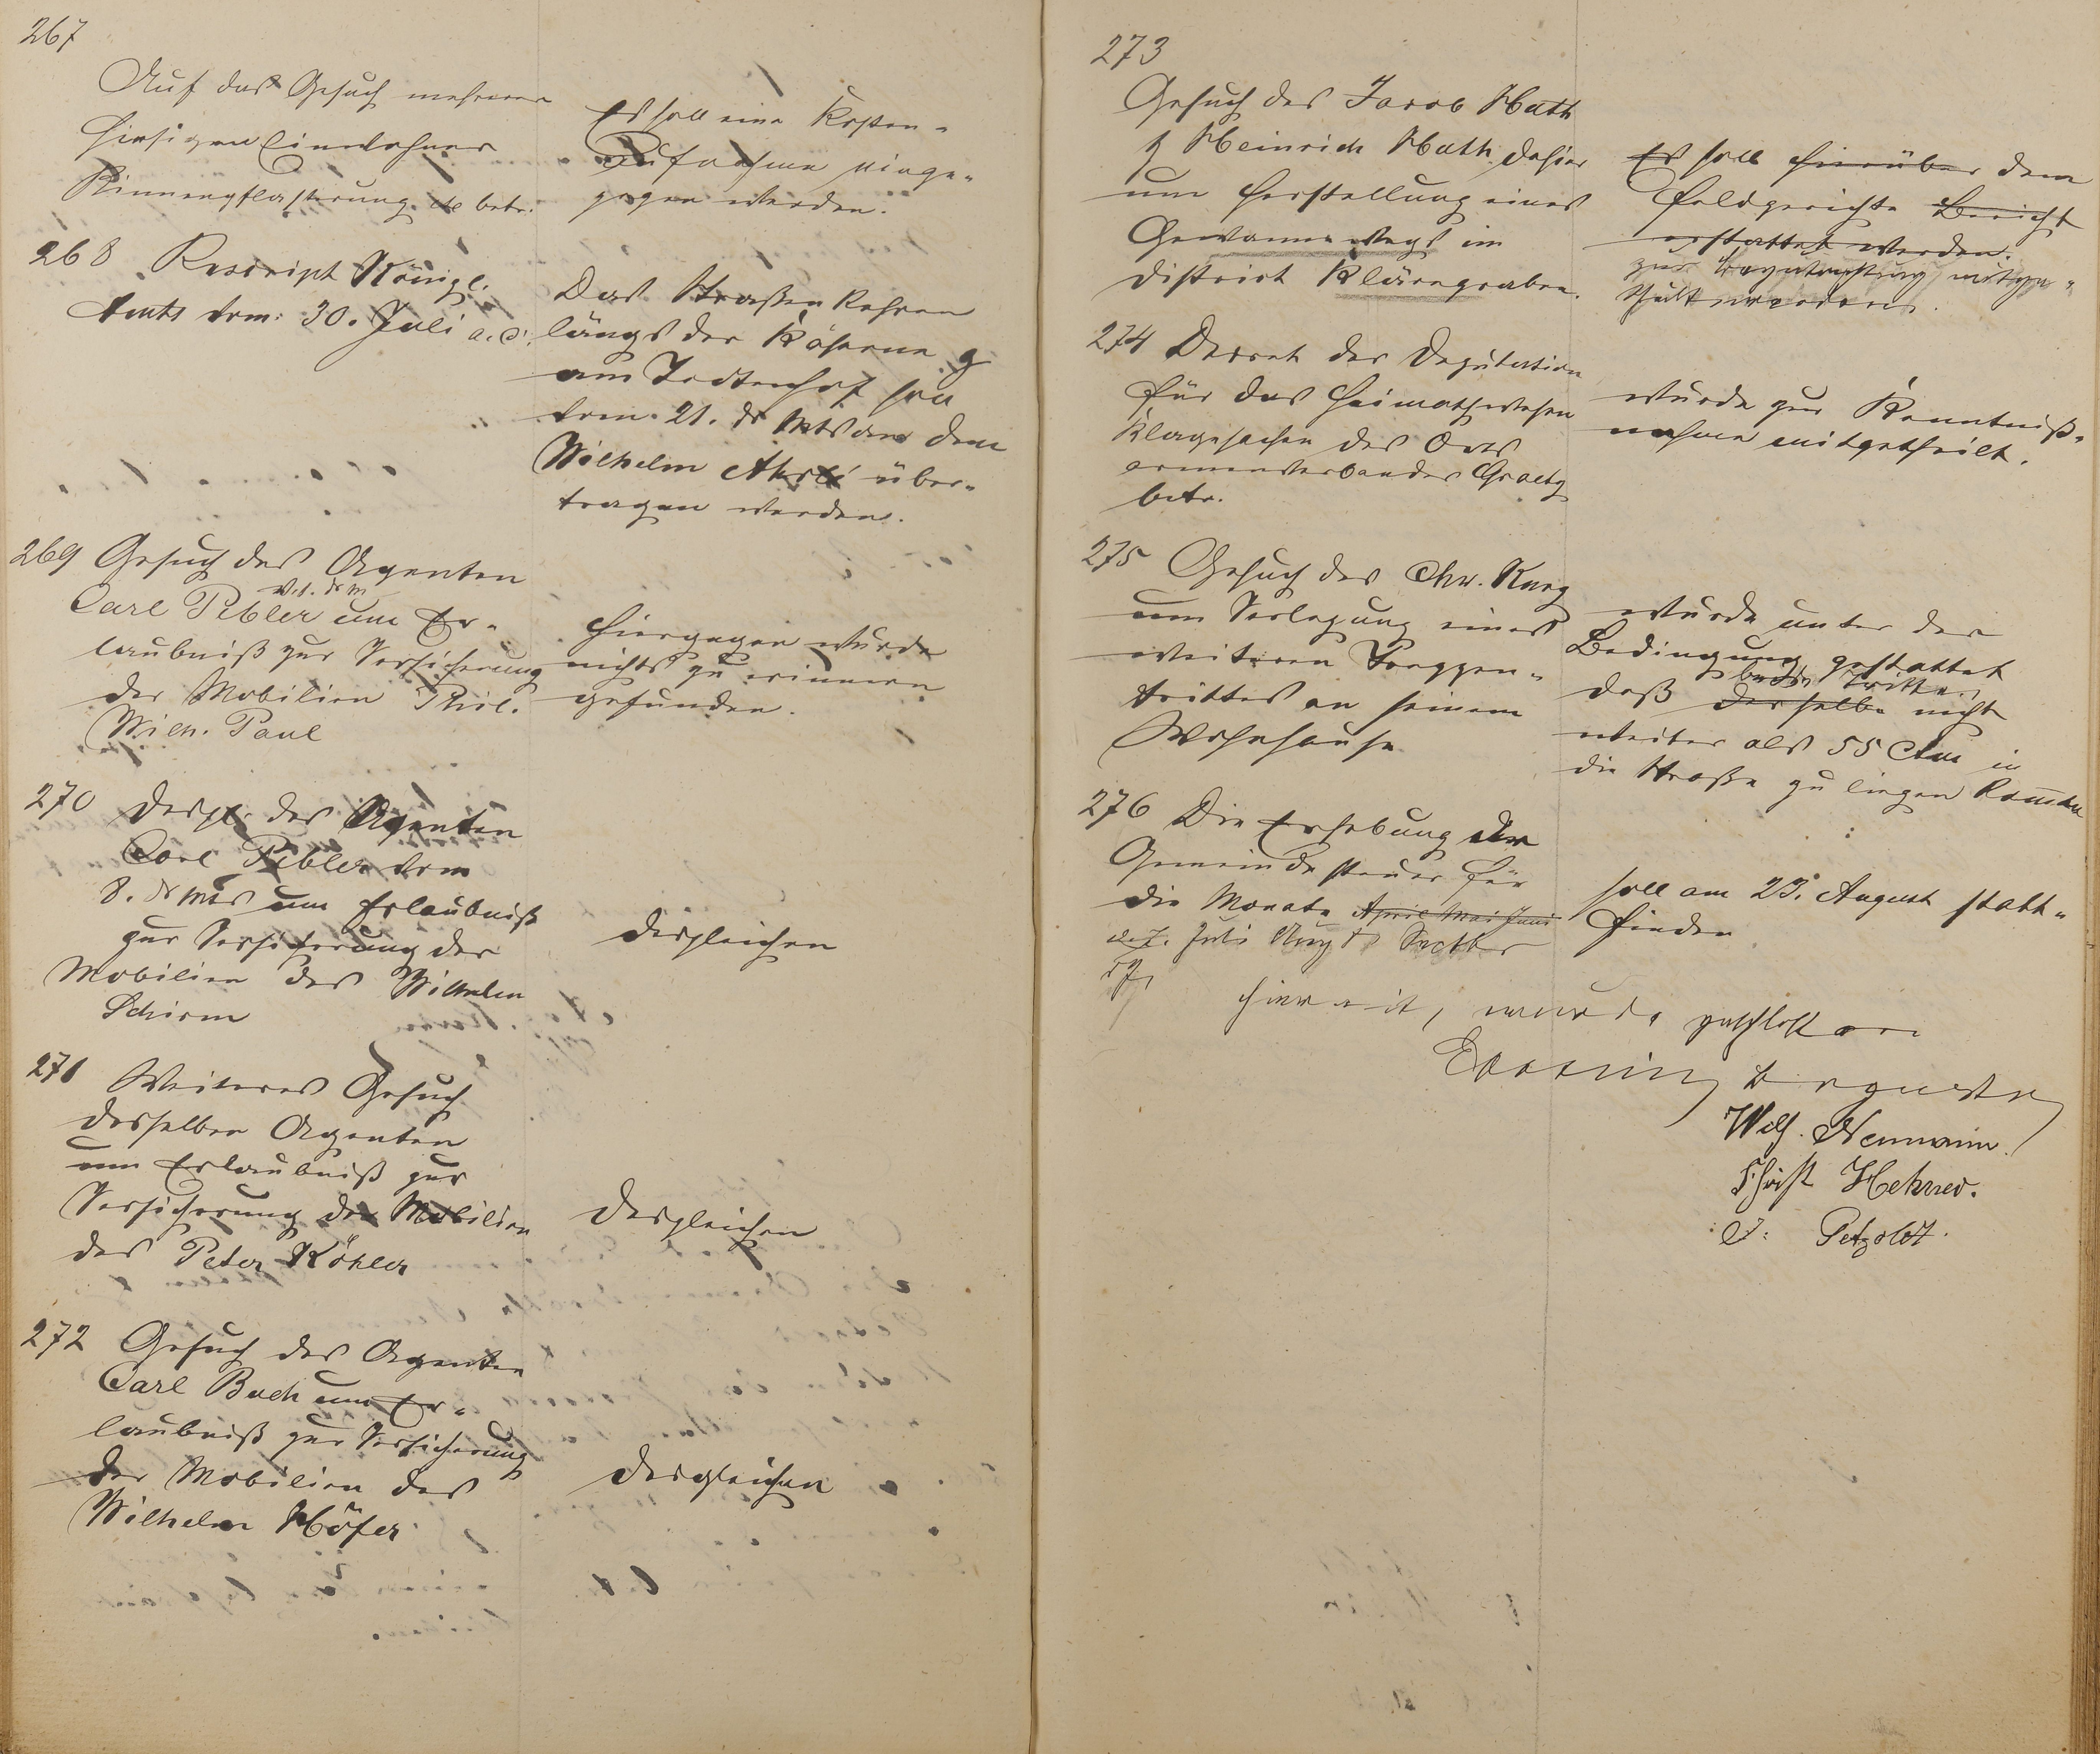 267
Auf das Gesuch mehrerer
hiesigen Einwohner
Rinnenpflasterung etc betr.
Es soll eine Kosten-
Aufnahme einge-
zogen werden.
268 Rescript Königl.
Amts vom: 30. Juli a. c.
Das Straßen Kehren
längs der
am Todtenhof soll
vom 21. ds Mts an dem
Wilhelm über-
tragen werden.
269 Gesuch des Agenten
Carl Pebler um Er-
laubniß zur Versicherung
der Mobilien Phil.
Wilh. Paul
Hiergegen wurde
nichts zu erinnern
gefunden.
270 desgl. des Agenten
Carl Pebler vom
8. ds Mts um Erlaubniß
zur Versicherung der
Mobilien des Wilhelm
Schirm
desgleichen
271 Weiteres Gesuch
desselben Agenten
um Erlaubniß zur
Versicherung der Mobilien
des Peter Köhler
desgleichen
272 Gesuch des Agenten
Carl Bach um Er-
laubniß zur Versicherung
der Mobilien des
Wilhelm Höfer
desgleichen
273
Gesuch des Jacob Huth
& Heinrich Huth dahier
um Herstellung eines
Gewannwegs im
District Klärngraben.
Es soll hierüber dem
Feldgerichte Bericht
erstattet werden.
zur Begutachtung mitge-
theilt werden.
274 Decret der Deputation
für das Heimathwesen
Klagesachen des Orts
armenverbandes Graetz
betr.
wurde zur Kenntniß-
nahme mitgetheilt.
275 Gesuch des Chr. Karg
um Verlegung eines
weiteren Treppen-
trittes an seinem
Wohnhause
wurde unter der
Bedingung gestattet
beide Tritte
daß derselbe nicht
weiter als 55 Ctm in
die Straße zu liegen kommen
276 Die Erhebung der
Gemeindesteuer für
die Monate April Mai Juni
Juli August Sectbr
soll am 23. August statt-
finden
hiermit, wurde geschlossen
Wilh. Neumann.
Christ Hehner.
Petzoldt.